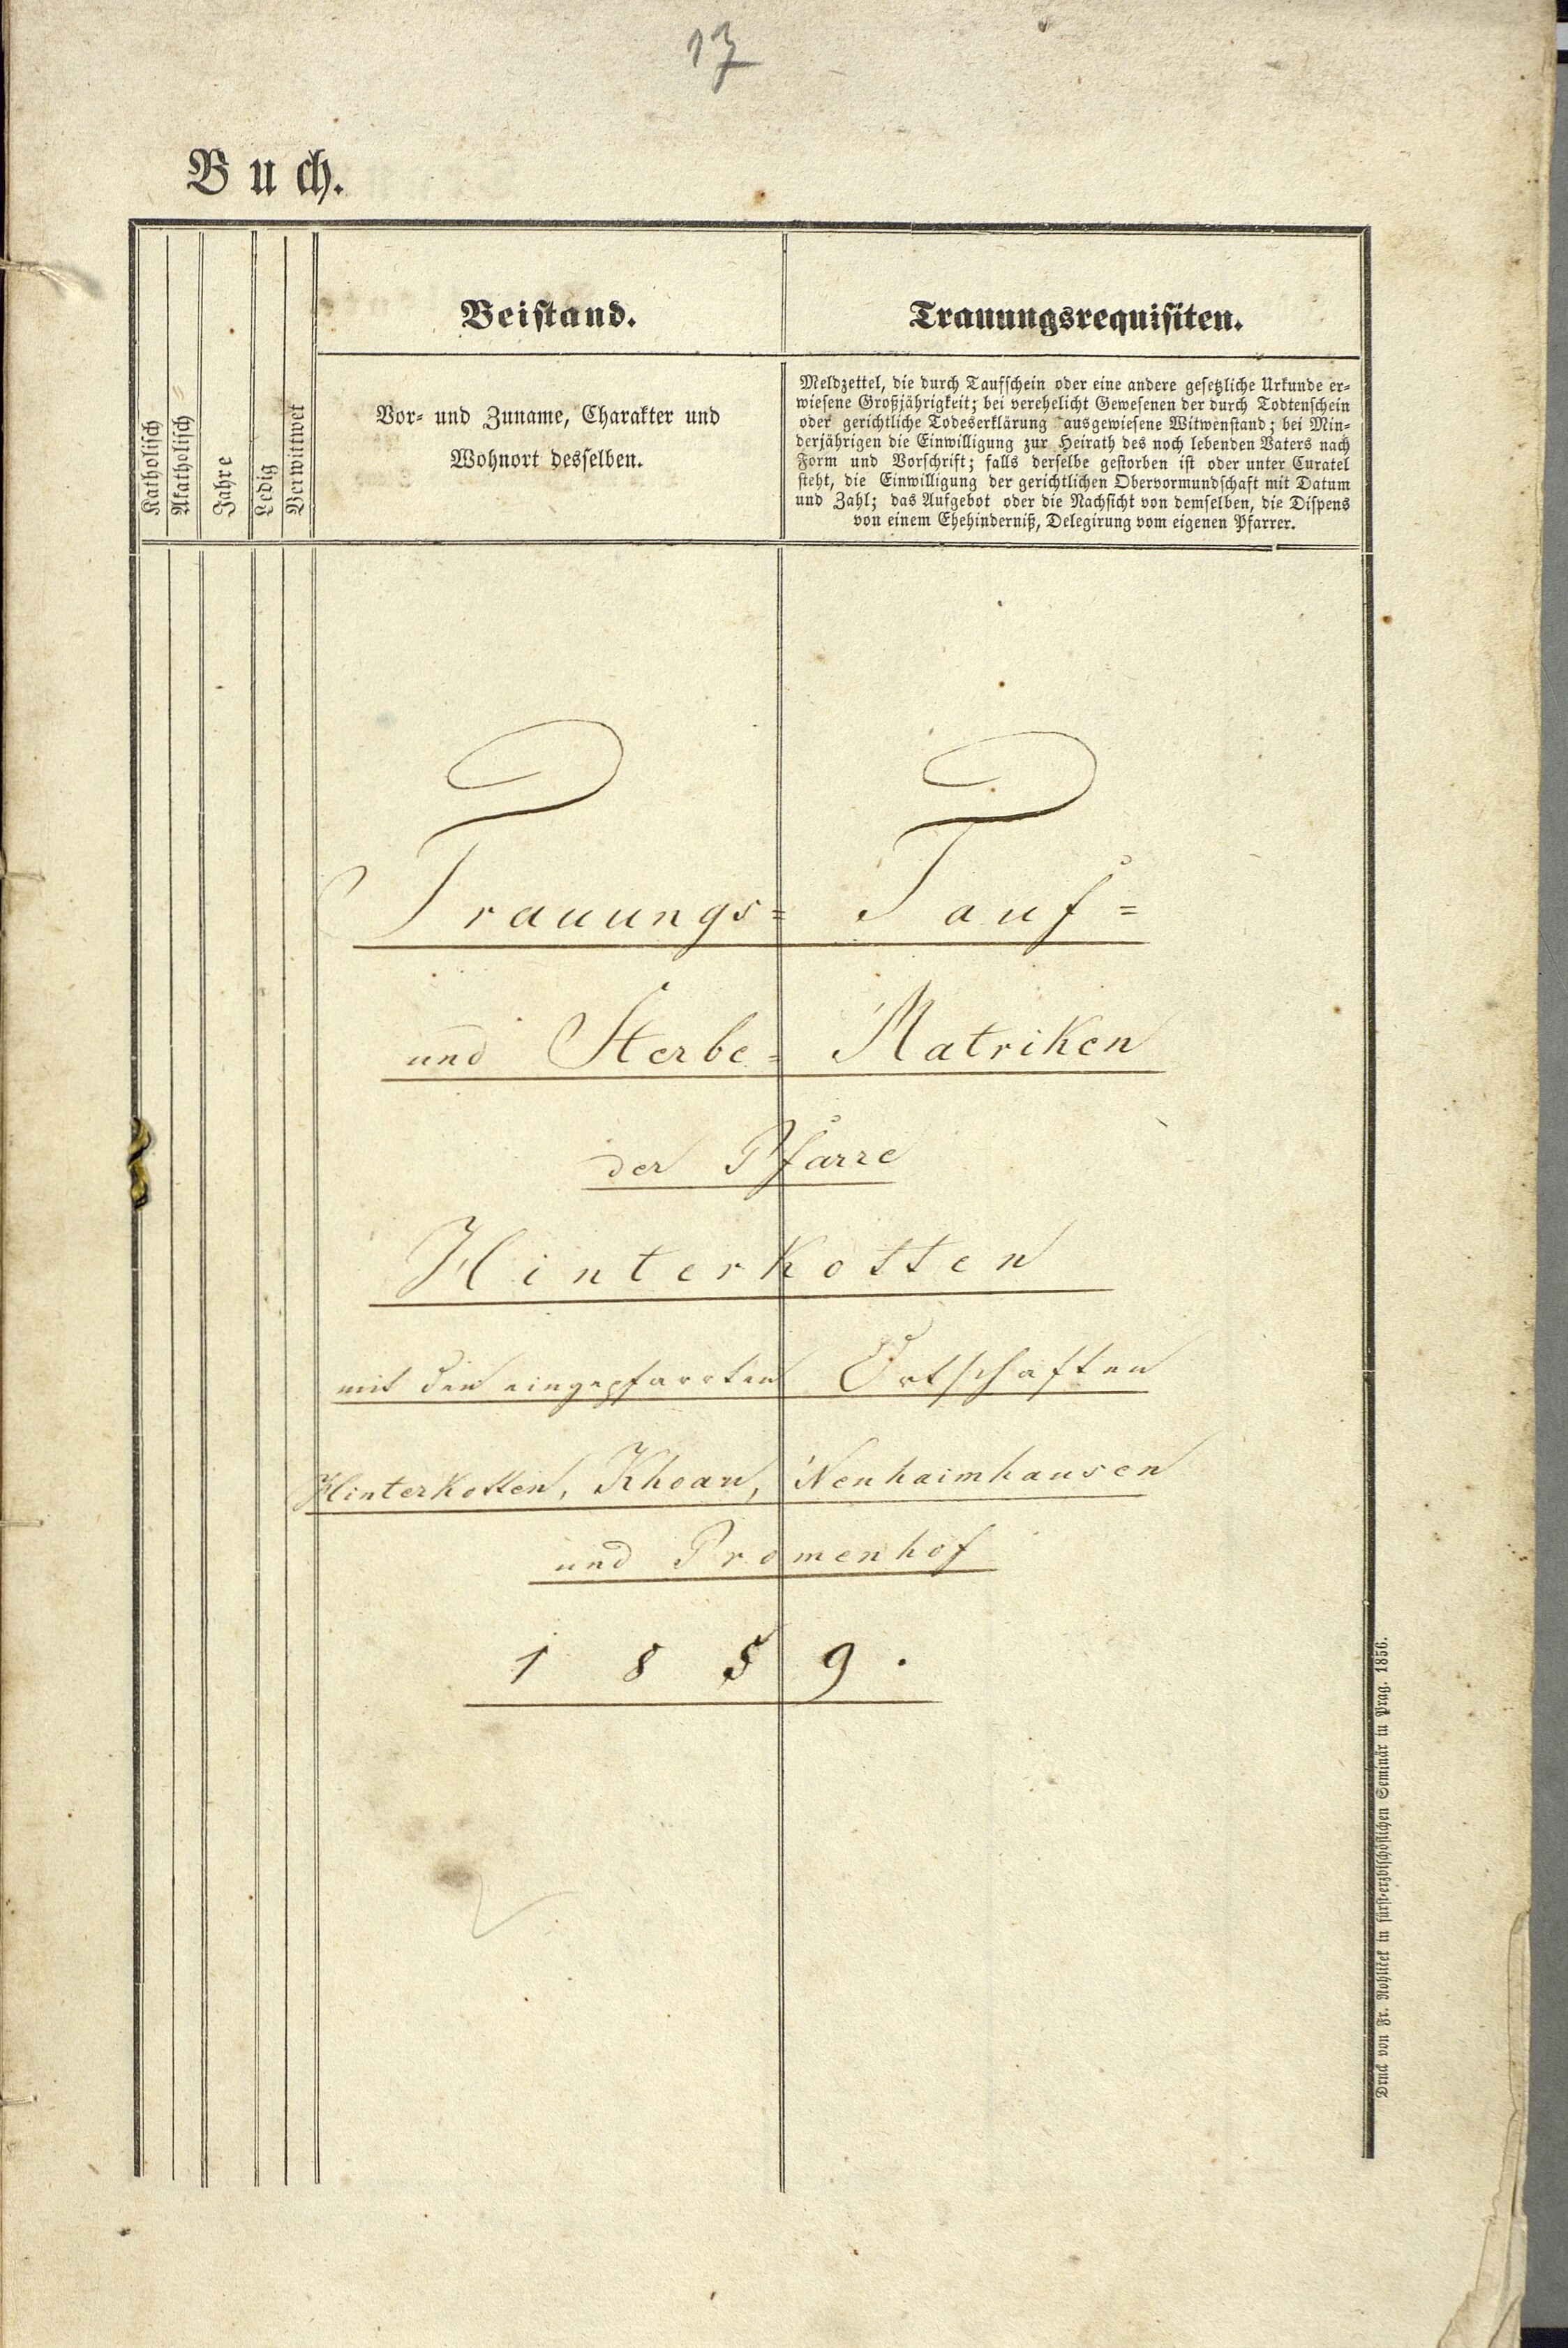 17
Buch.
Katholisch
Akatholisch
Jahre
Ledig
Verwittwet
Beistand.
Vor- und Zuname, Charakter und
Wohnort desselben.
Trauungsrequisiten.
Meldzettel, die durch Taufschein oder eine andere gesetzliche Urkunde er-
wiesene Großjährigkeit; bei verehelicht Gewesenen der durch Todtenschein
oder gerichtliche Todeserklärung ausgewiesene Witwenstand; bei Min-
derjährigen die Einwilligung zur Heirath des noch lebenden Vaters nach
Form und Vorschrift; falls derselbe gestorben ist oder unter Curatel
steht, die Einwilligung der gerichtlichen Obervormundschaft mit Datum
und Zahl; das Aufgebot oder die Nachsicht von demselben, die Dispens
von einem Ehehinderniß, Delegirung vom eigenen Pfarrer.
Trauungs= Tauf=
und Sterbe= Matriken
der Pfarre
Hinterkotten
mit den eingepfarrten Ortschaften
Hinterkotten, Khoau, Neuhaimhausen
und Promenhof
1859.
Druck von Fr. Rohliček in fürst-erzbischöflichen Seminär in Prag. 1856.